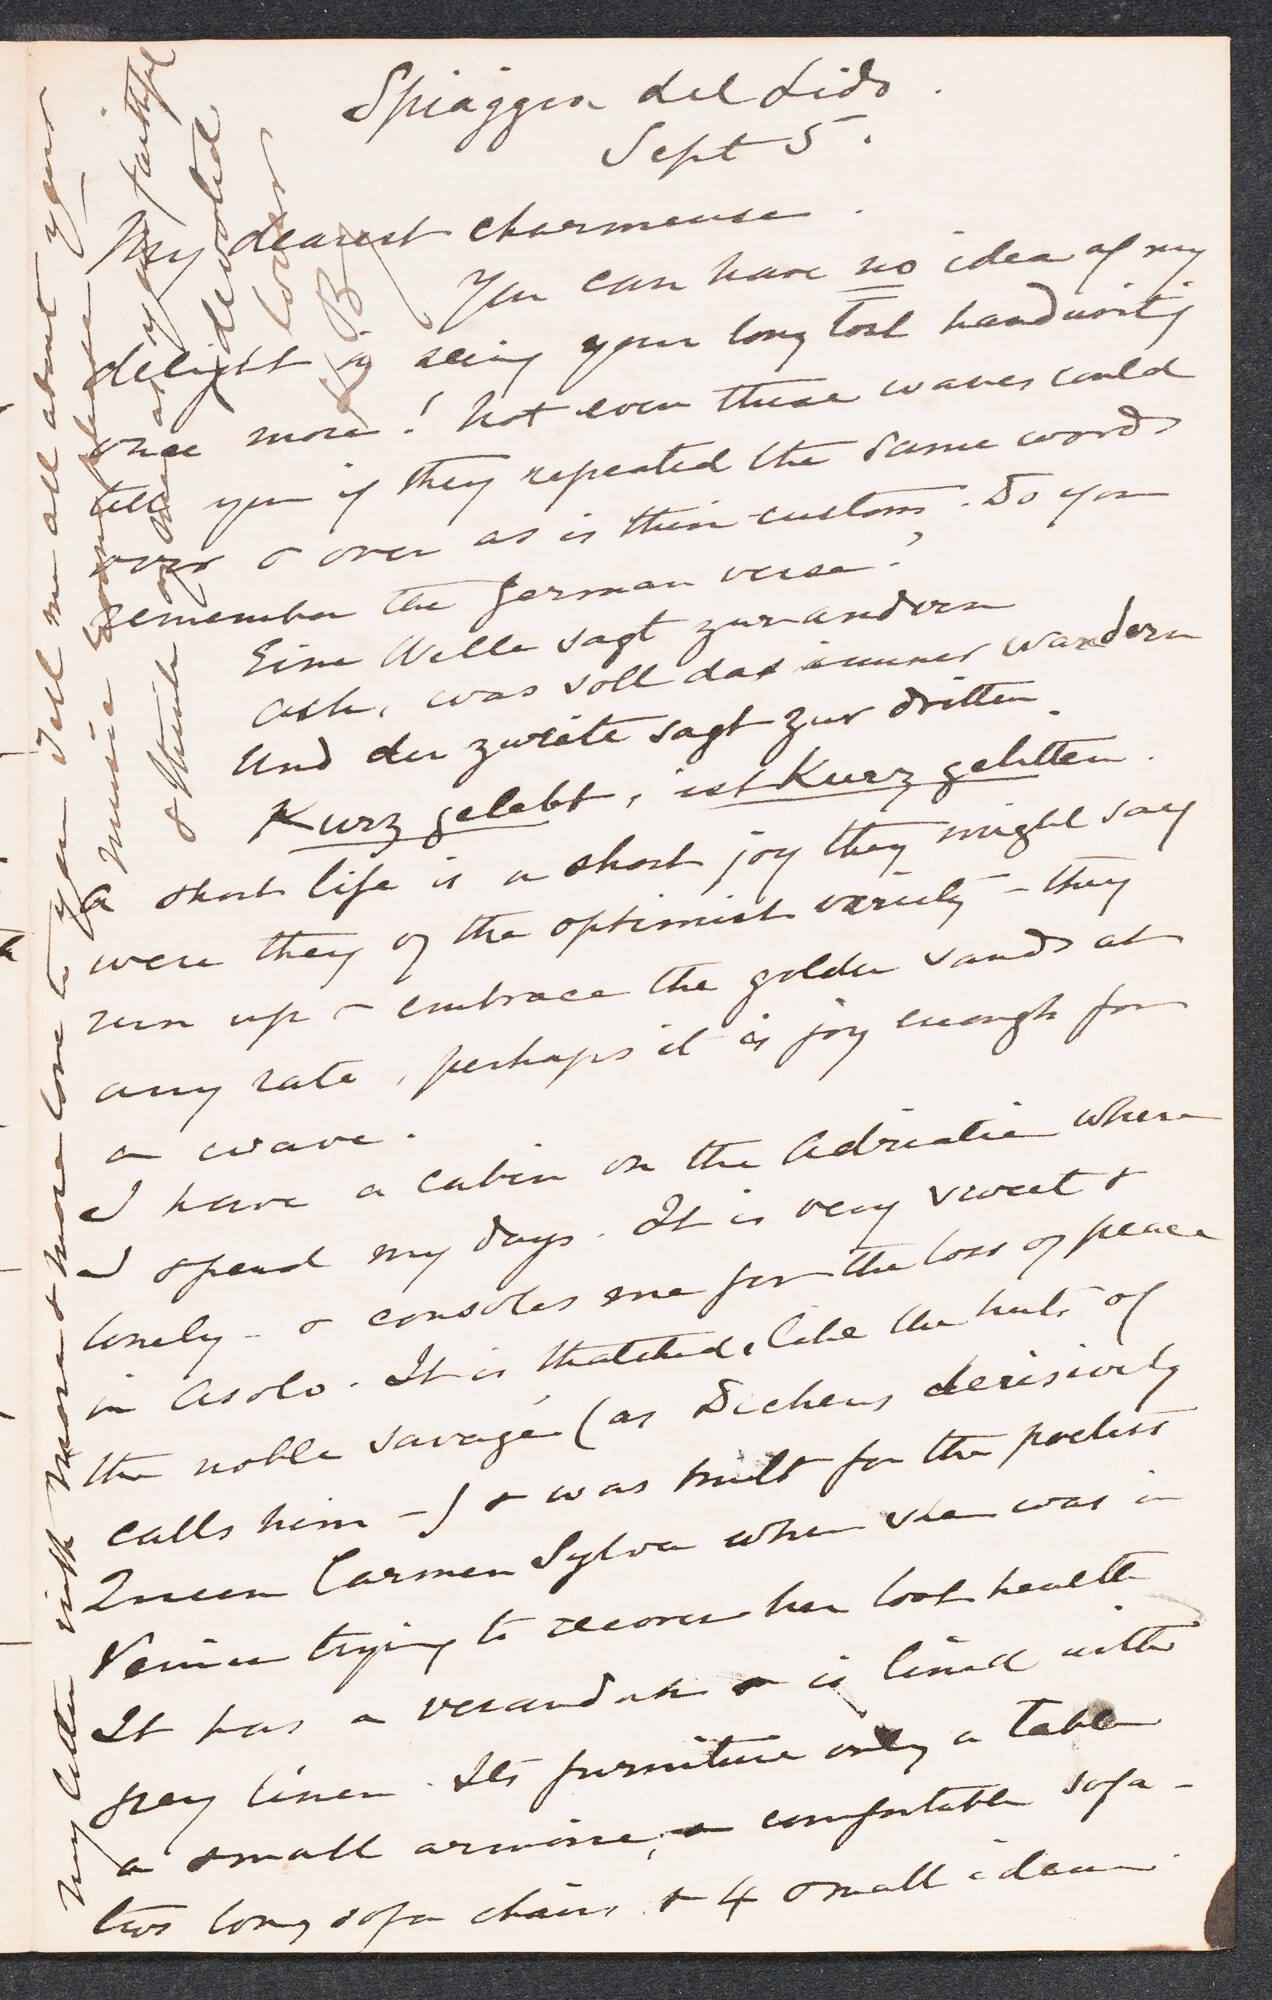 Spiaggia del Lido.
Sept 5.
My dearest charmeuse.
You can have no idea of my
delight in seeing your long lost handwriting
once more! Not even these waves could
tell you if they repeated the same words
over & over as is their custom. Do you
remember the German verse?
Eine Welle sagt zur andern
Ach, was soll das immer wandern
Und der zweite sagt zur dritten.
Kurz gelebt, ist Kurz gelitten.
A short life is a short joy they might say
were they of the optimist variety - they
run up & embrace the golden sands at
any rate, perhaps it is joy enough for
a wave.
I have a cabin on the Adriatic where
I spend my days. It is very sweet &
lonely - & consoles me for the loss of peace
in Asolo. It is thatched, like the huts of
the noble savage (as Dickens derisively
calls him -) & was built for the poetess
Queen Carmen Sylva when she was in
Venice trying to recover her lost health
It has a verandah & is lined with
grey linen. Its furniture only a table
a small armoire, a comfortable sofa -
two long sofa chairs & 4 small idem.
My letter with more & more love to you Tell me all about your
music Soon please
& think of me as your faithful
devoted
lover
KB